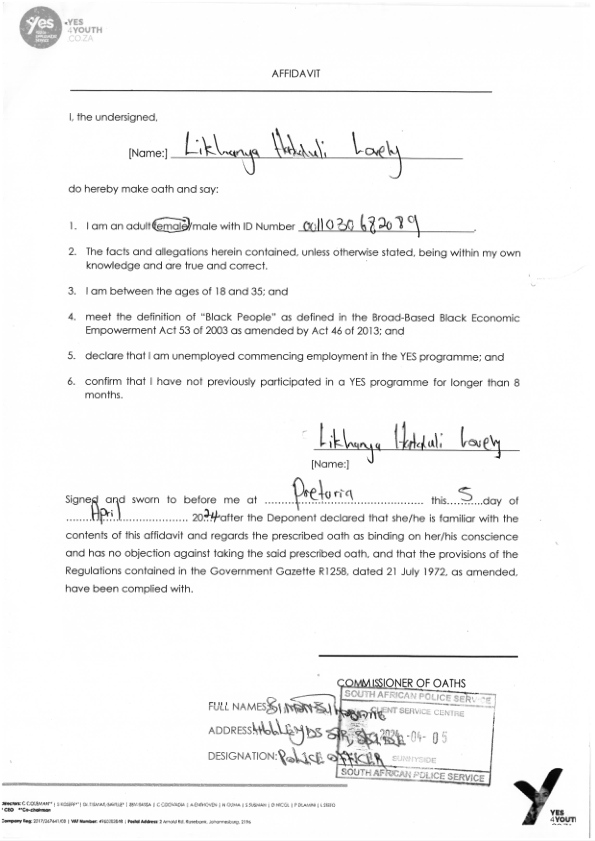 Yes
YES
4YOUTH
CO.ZA
AFFIDAVIT
I, the undersigned,
[Name:] Likhanya Hatduli Lovely
do hereby make oath and say:
1. I am an adult female/male with ID Number 0011030682089
2. The facts and allegations herein contained, unless otherwise stated, being within my own
knowledge and are true and correct.
3. I am between the ages of 18 and 35; and
4. meet the definition of “Black People” as defined in the Broad-Based Black Economic
Empowerment Act 53 of 2003 as amended by Act 46 of 2013; and
5. declare that I am unemployed commencing employment in the YES programme; and
6. confirm that I have not previously participated in a YES programme for longer than 8
months.
Likhanya Hatduli Lovely
[Name:]
Signed and sworn to before me at Pretoria this 5 day of
April 2024 after the Deponent declared that she/he is familiar with the
contents of this affidavit and regards the prescribed oath as binding on her/his conscience
and has no objection against taking the said prescribed oath, and that the provisions of the
Regulations contained in the Government Gazette R1258, dated 21 July 1972, as amended,
have been complied with.
COMMISSIONER OF OATHS
SOUTH AFRICAN POLICE SERVICE
CLIENT SERVICE CENTRE
FULL NAMES:
ADDRESS:
2024-04-05
DESIGNATION: POLICE OFFICER
SUNNYSIDE
SOUTH AFRICAN POLICE SERVICE
YES
4YOUTH
CO.ZA
* CEO **Co-chairman